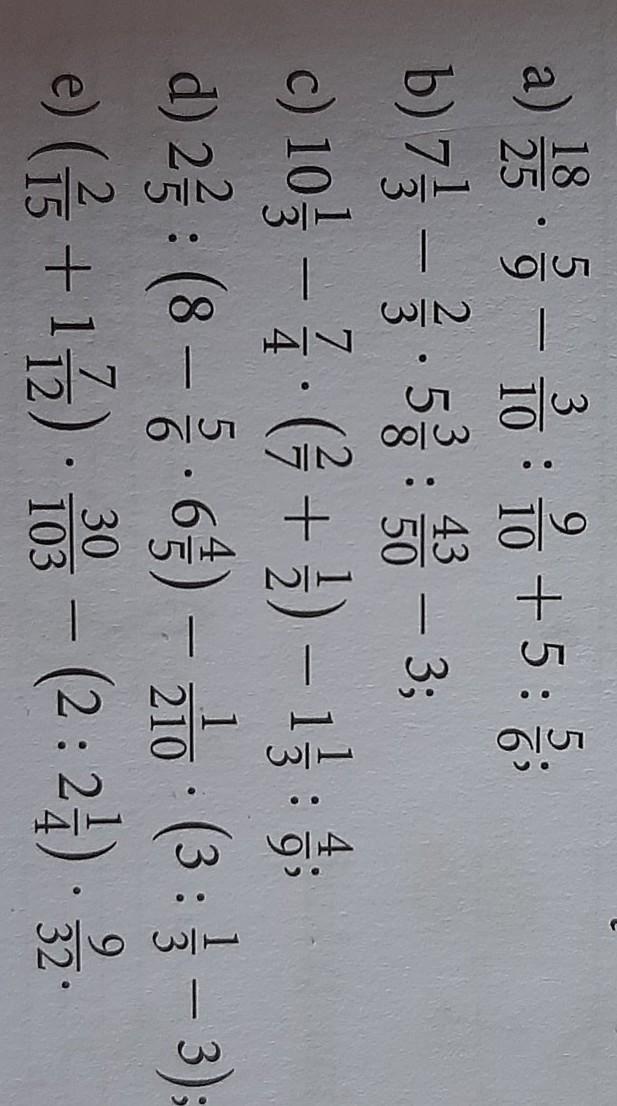 a) 18/25 · 5/9 − 3/10 : 9/10 + 5 : 5/6;
b) 7 1/3 − 2/3 · 5 3/8 : 43/50 − 3;
c) 10 1/3 − 7/4 · (2/7 + 1/2) − 1 1/3 : 4/9;
d) 2 2/5 : (8 − 5/6 · 6 4/5) − 1/210 · (3 : 1/3 − 3);
e) (2/15 + 1 7/12) · 30/103 − (2 : 2 1/4) · 9/32.